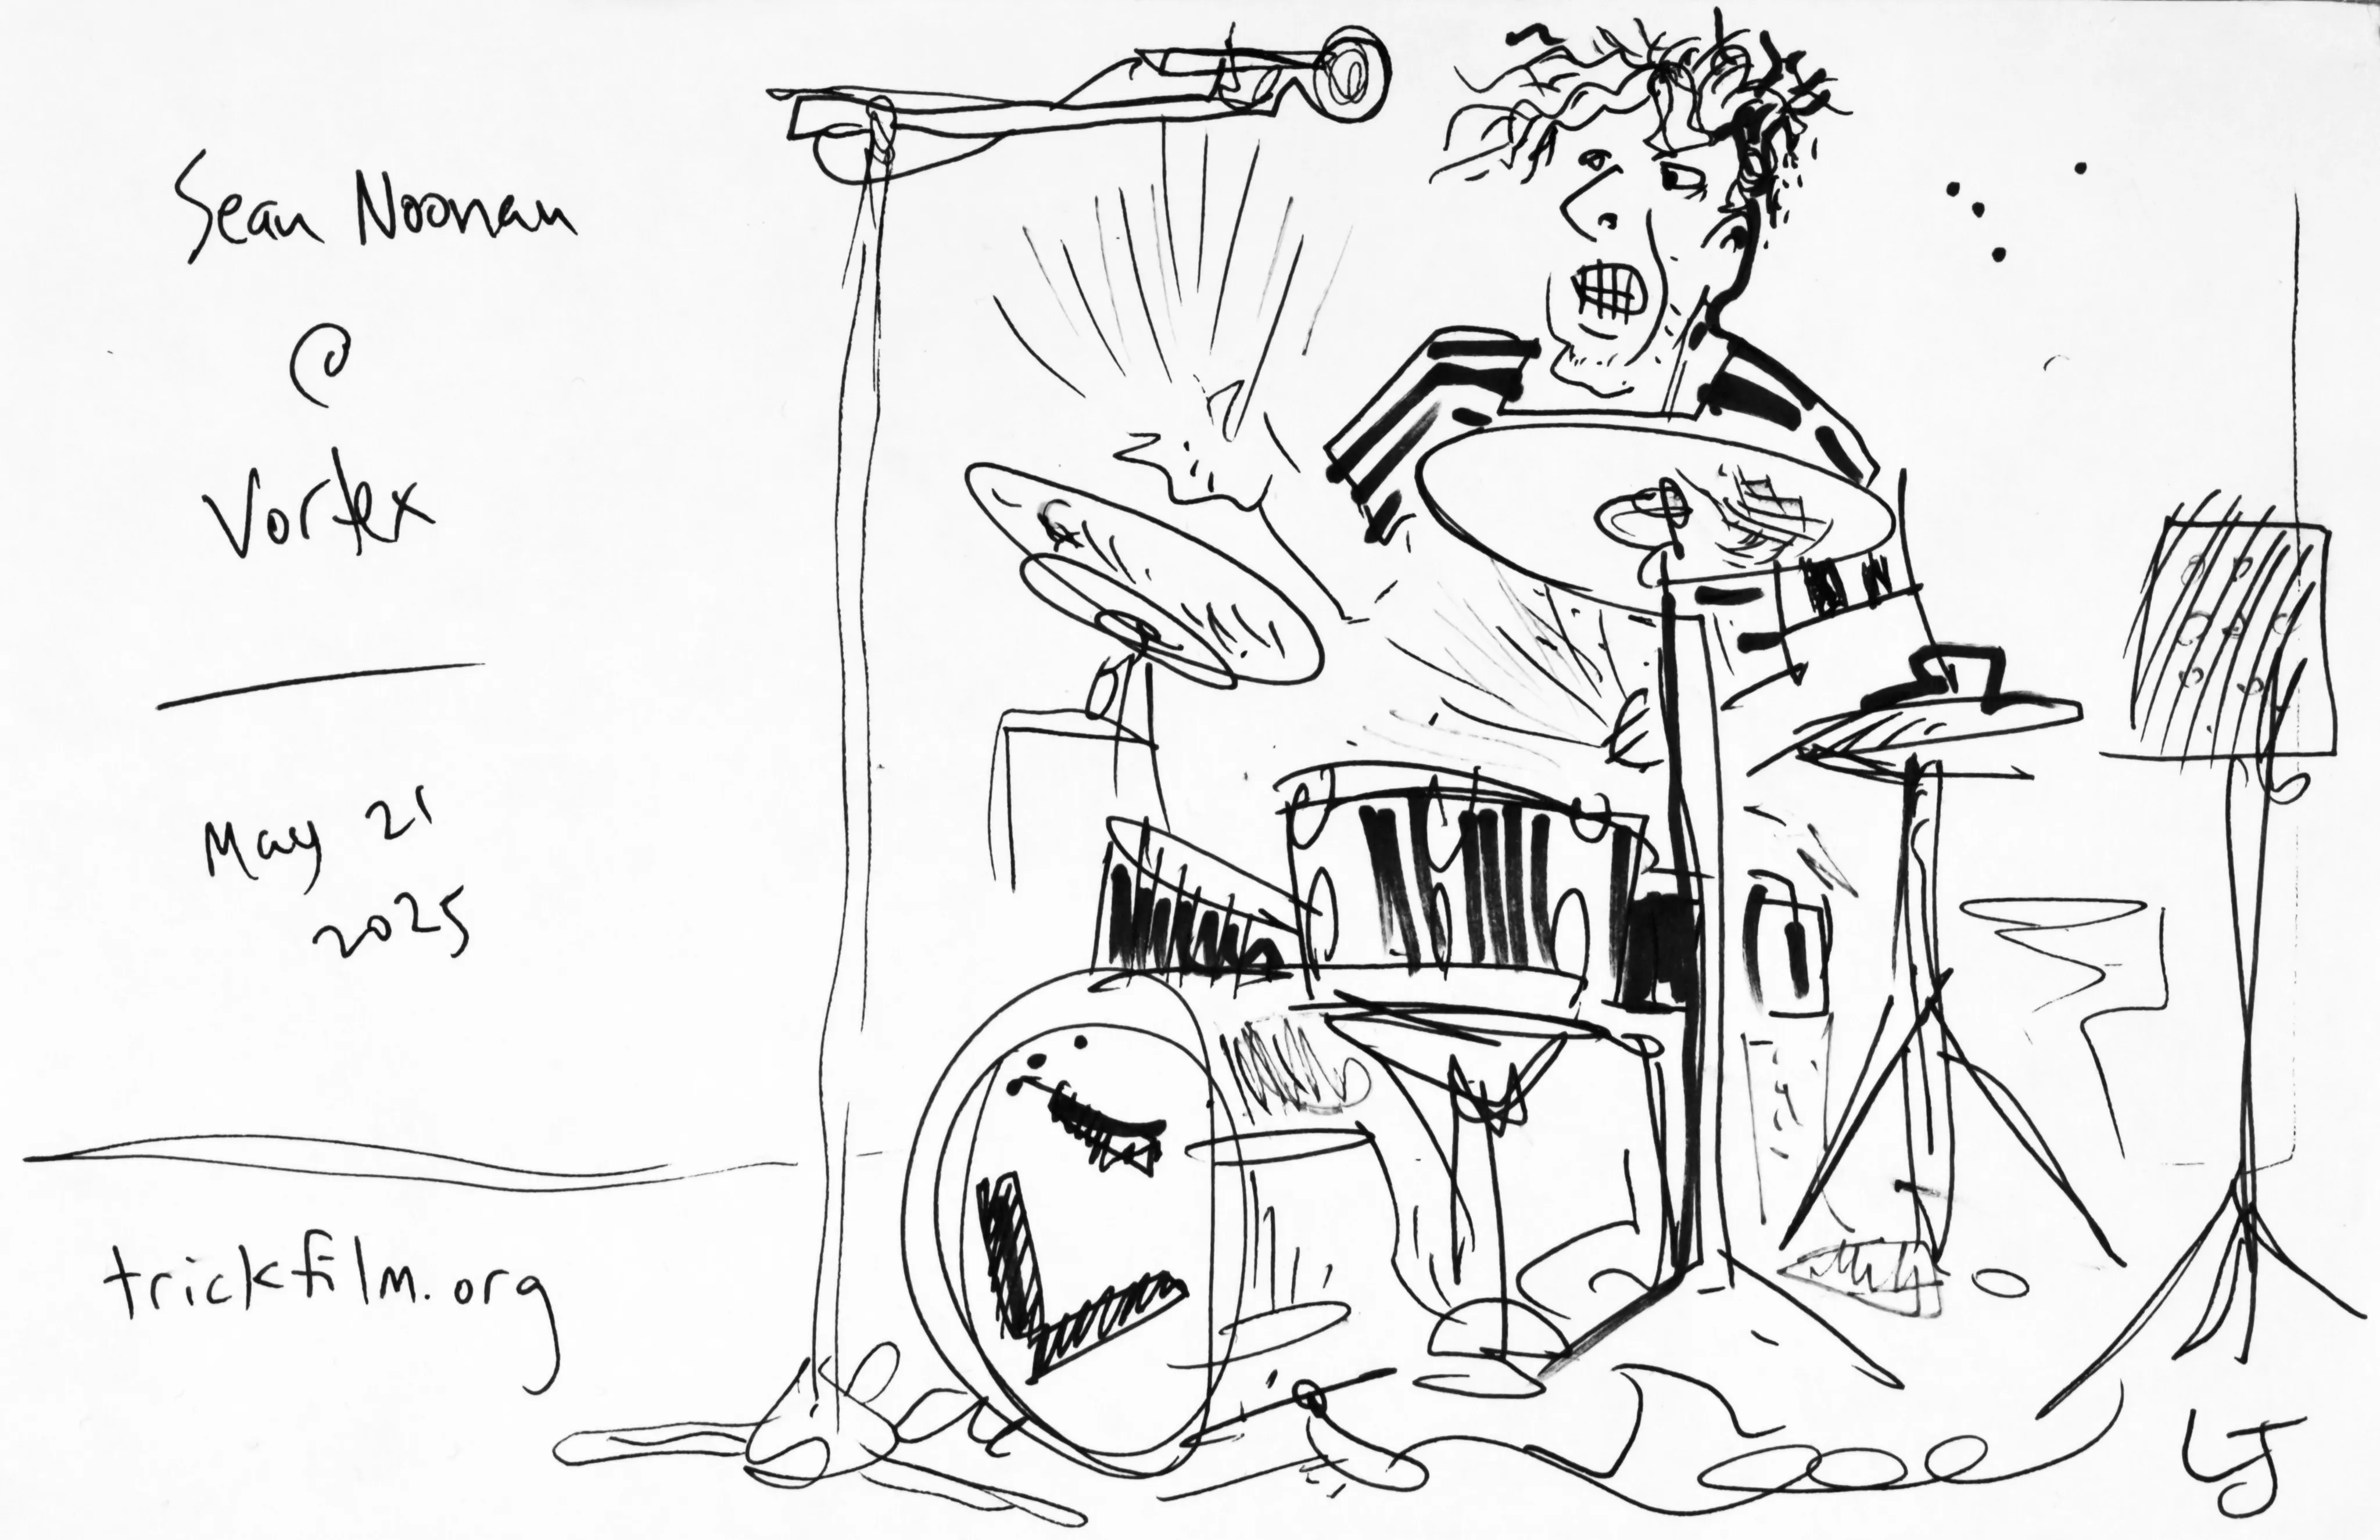 Sean Noonan
@
Vortex
May 21
2025
trickfilm.org
LJ